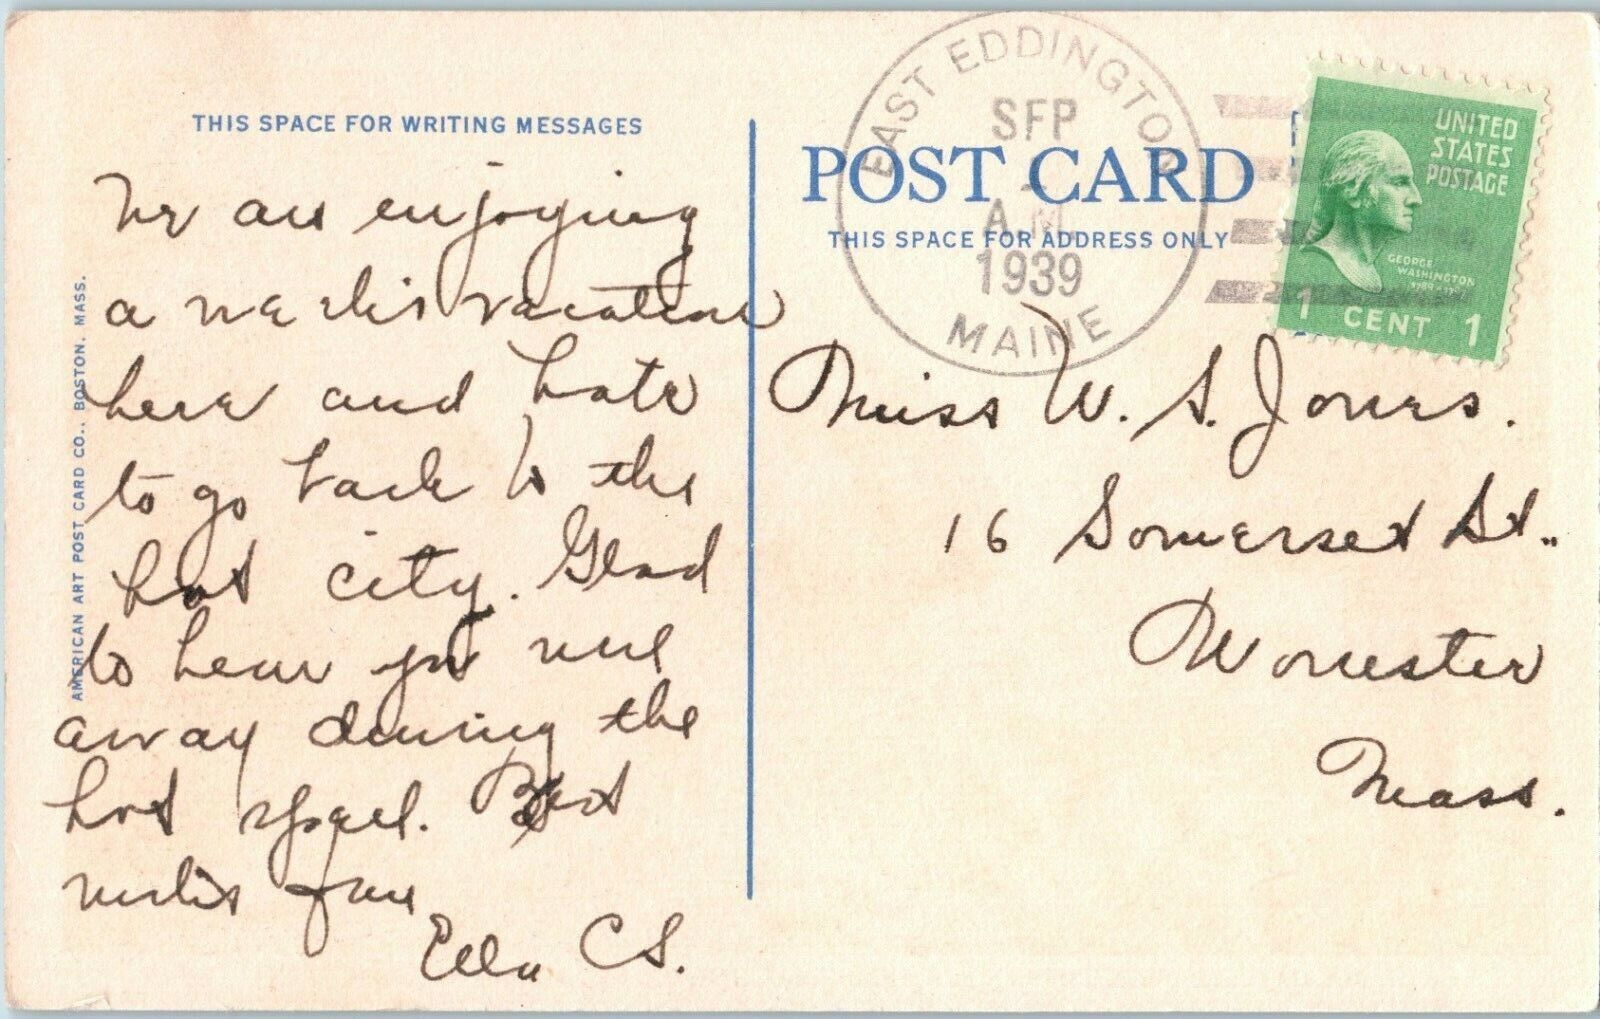 THIS SPACE FOR WRITING MESSAGES
We are enjoying
a week's vacation
here and hate
to go back to the
hot city. Glad
to hear you were
away during the
hot spell. Best
wishes from
Ella C S.
AMERICAN ART POST CARD CO., BOSTON, MASS.
EAST EDDINGTON
SEP
A.M.
1939
MAINE
POST CARD
THIS SPACE FOR ADDRESS ONLY
UNITED
STATES
POSTAGE
GEORGE
WASHINGTON
1 CENT 1
Miss W. S. Jones.
16 Somerset St.
Worcester
Mass.